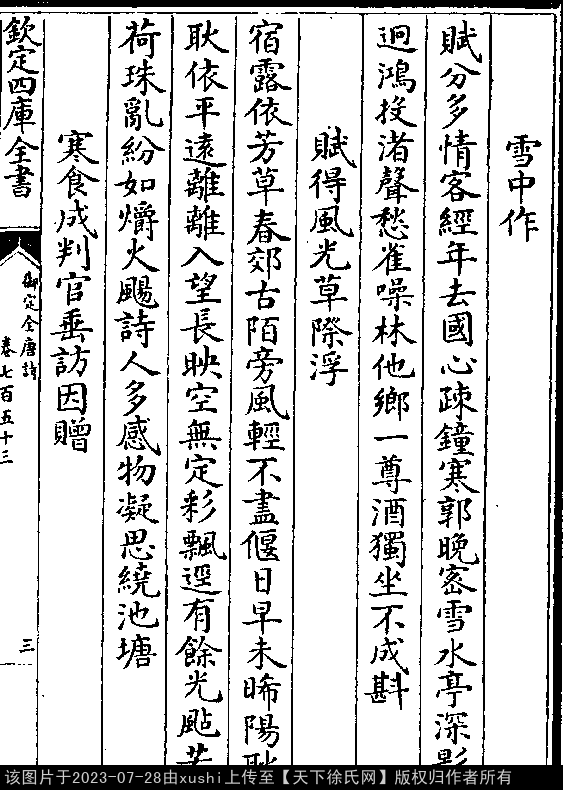 雪中作
賦分多情客經年去國心疎鐘寒郭晚密雪水亭深影
迥鴻投渚聲愁雀噪林他鄉一尊酒獨坐不成斟
賦得風光草際浮
宿露依芳草春郊古陌旁風輕不盡偃日早未晞陽耿
耿依平遠離離入望長映空無定彩飄逕有餘光颭若
荷珠亂紛如爝火颺詩人多感物凝思繞池塘
寒食成判官垂訪因贈
欽定四庫全書
御定全唐詩
卷七百五十三
三
该图片于2023-07-28由xushi上传至【天下徐氏网】版权归作者所有